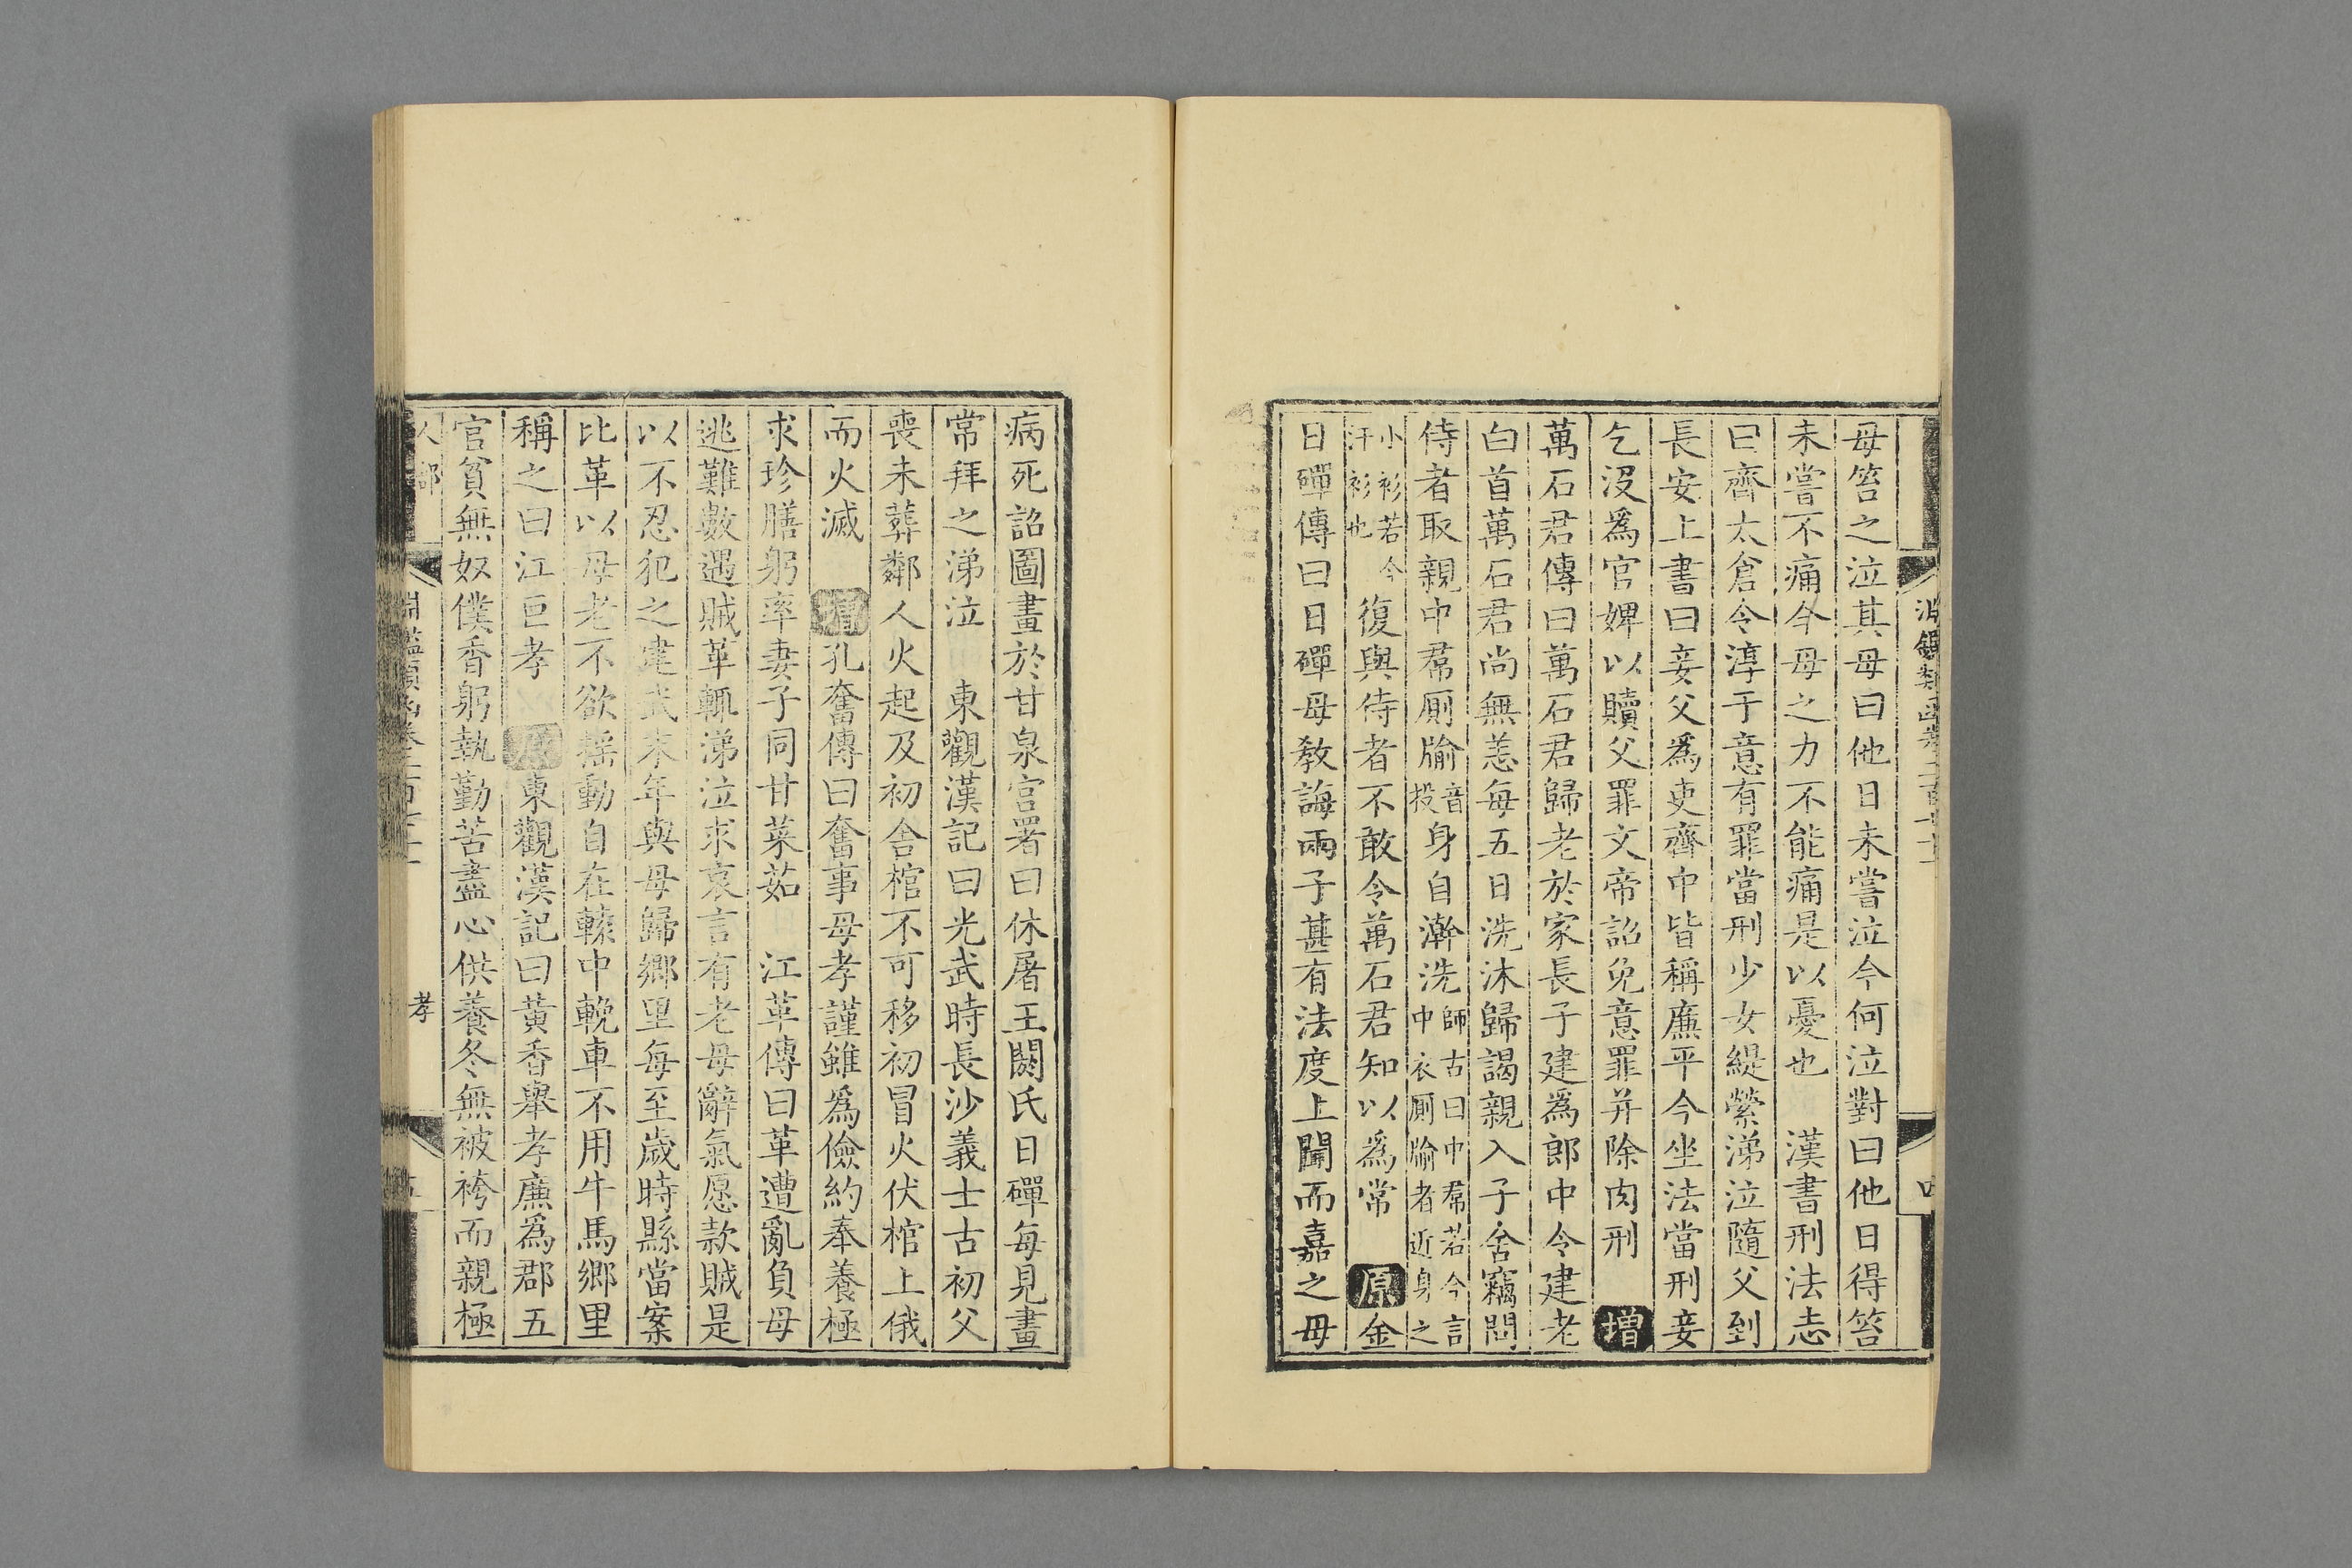 淵鑑類函卷二百七十一
四
母笞之泣其母曰他日未嘗泣今何泣對曰他日得笞
未嘗不痛今母之力不能痛是以憂也　漢書刑法志
曰齊太倉令淳于意有罪當刑少女緹縈涕泣隨父到
長安上書曰妾父爲吏齊中皆稱廉平今坐法當刑妾
乞沒爲官婢以贖父罪文帝詔免意罪并除肉刑　增
萬石君傳曰萬石君歸老於家長子建爲郎中令建老
白首萬石君尚無恙每五日洗沐歸謁親入子舍竊問
侍者取親中帬厠牏音投身自澣洗師古曰中帬若今言中衣厠牏者近身之
小衫若今汗衫也復與侍者不敢令萬石君知以爲常　原金
日磾傳曰日磾母教誨兩子甚有法度上聞而嘉之母
病死詔圖畫於甘泉宮署曰休屠王閼氏日磾每見畫
常拜之涕泣　東觀漢記曰光武時長沙義士古初父
喪未葬鄰人火起及初舍棺不可移初冒火伏棺上俄
而火滅　增孔奮傳曰奮事母孝謹雖爲儉約奉養極
求珍膳躬率妻子同甘菜茹　江革傳曰革遭亂負母
逃難數遇賊革輒涕泣求哀言有老母辭氣愿款賊是
以不忍犯之建武末年與母歸鄉里每至歲時縣當案
比革以母老不欲搖動自在轅中輓車不用牛馬鄉里
稱之曰江巨孝　原東觀漢記曰黃香舉孝廉爲郡五
官貧無奴僕香躬執勤苦盡心供養冬無被袴而親極
人部
淵鑑類函卷二百七十一
孝
五